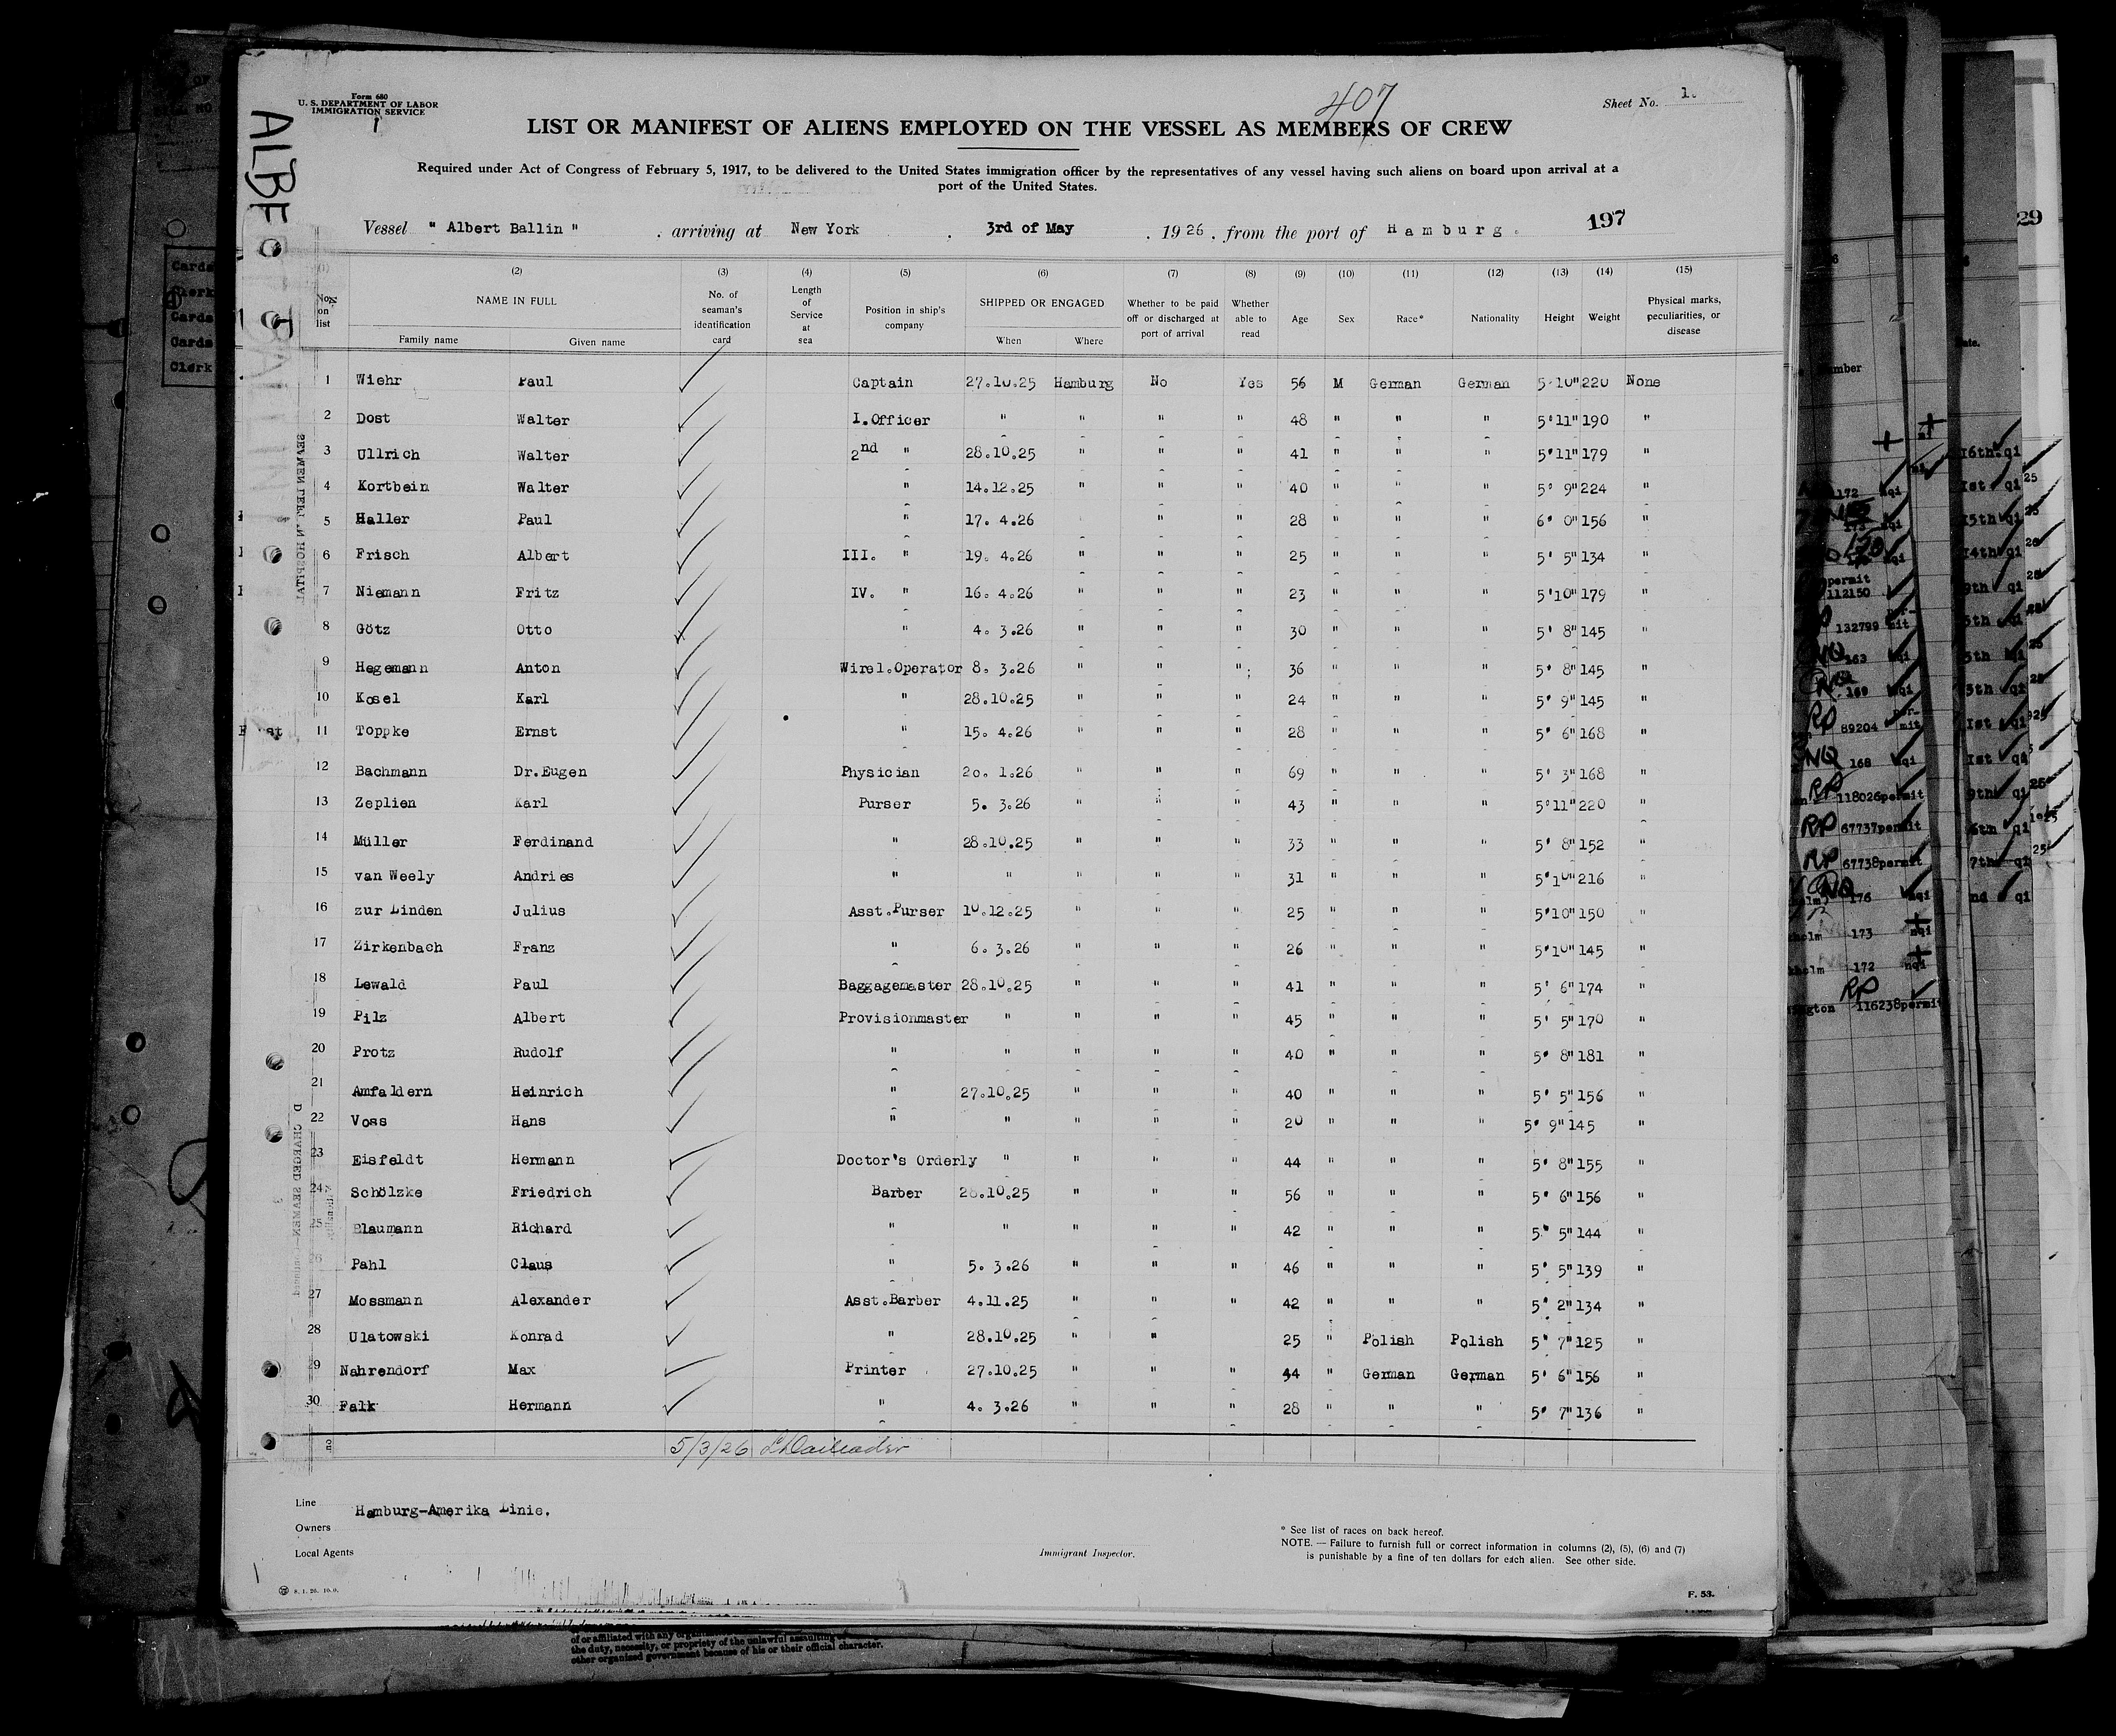 Form 680
U. S. DEPARTMENT OF LABOR
IMMIGRATION SERVICE
1
407
Sheet No. 1.
LIST OR MANIFEST OF ALIENS EMPLOYED ON THE VESSEL AS MEMBERS OF CREW
Required under Act of Congress of February 5, 1917, to be delivered to the United States immigration officer by the representatives of any vessel having such aliens on board upon arrival at a
port of the United States.
Vessel " Albert Ballin " . arriving at New York . 3rd of May . 1926 . from the port of Hamburg. 197
(2) (3) (4) (5) (6) (7) (8) (9) (10) (11) (12) (13) (14) (15)
Nos. on list NAME IN FULL Family name Given name No. of seaman's identification card Length of Service at sea Position in ship's company SHIPPED OR ENGAGED When Where Whether to be paid off or discharged at port of arrival Whether able to read Age Sex Race* Nationality Height Weight Physical marks, peculiarities, or disease
1 Wiehr Paul Captain 27.10.25 Hamburg No Yes 56 M German German 5'10" 220 None
2 Dost Walter I.Officer " " " " 48 " " " 5'11" 190 "
3 Ullrich Walter 2nd " 28.10.25 " " " 41 " " " 5'11" 179 "
4 Kortbein Walter " 14.12.25 " " " 40 " " " 5' 9" 224 "
5 Haller Paul " 17. 4.26 " " 28 " " " 6' 0" 156 "
6 Frisch Albert III. " 19. 4.26 " " " 25 " " " 5' 5" 134 "
7 Niemann Fritz IV. " 16. 4.26 " " " 23 " " " 5'10" 179 "
8 Götz Otto " 4. 3.26 " " " 30 " " " 5' 8" 145 "
9 Hegemann Anton Wirel.Operator 8. 3.26 " " " 36 " " " 5' 8" 145 "
10 Kosel Karl " 28.10.25 " " " 24 " " " 5' 9" 145 "
11 Toppke Ernst " 15. 4.26 " " " 28 " " " 5' 6" 168 "
12 Bachmann Dr.Eugen Physician 20. 1.26 " " " 69 " " " 5' 3" 168 "
13 Zeplien Karl Purser 5. 3.26 " " " 43 " " " 5'11" 220 "
14 Müller Ferdinand " 28.10.25 " " " 33 " " " 5' 8" 152 "
15 van Weely Andries " " " " " 31 " " " 5'10" 216 "
16 zur Linden Julius Asst.Purser 10.12.25 " " " 25 " " " 5'10" 150 "
17 Zirkenbach Franz " 6. 3.26 " " " 26 " " " 5'10" 145 "
18 Lewald Paul Baggagemaster 28.10.25 " " " 41 " " " 5' 6" 174 "
19 Pilz Albert Provisionmaster " " " " 45 " " " 5' 5" 170 "
20 Protz Rudolf " " " " " 40 " " " 5' 8" 181 "
21 Amfaldern Heinrich " 27.10.25 " " " 40 " " " 5' 5" 156 "
22 Voss Hans " " " " " 20 " " " 5' 9" 145 "
23 Eisfeldt Hermann Doctor's Orderly " " " " 44 " " " 5' 8" 155 "
24 Schölzke Friedrich Barber 28.10.25 " " " 56 " " " 5' 6" 156 "
25 Blaumann Richard " " " " " 42 " " " 5' 5" 144 "
26 Pahl Claus " 5. 3.26 " " " 46 " " " 5' 5" 139 "
27 Mossmann Alexander Asst.Barber 4.11.25 " " " 42 " " " 5' 2" 134 "
28 Ulatowski Konrad " 28.10.25 " " 25 " Polish Polish 5' 7" 125 "
29 Nahrendorf Max Printer 27.10.25 " " " 44 " German German 5' 6" 156 "
30 Falk Hermann " 4. 3.26 " " " 28 " " " 5' 7" 136 "
5/3/26
Line Hamburg-Amerika Linie.
Owners
Local Agents
Immigrant Inspector.
* See list of races on back hereof.
NOTE. — Failure to furnish full or correct information in columns (2), (5), (6) and (7)
is punishable by a fine of ten dollars for each alien. See other side.
F. 53.
the duty, necessity, or propriety of the unlawful assaulting
other organized government because of his or their official character.
SEAMEN LEFT IN HOSPITAL
Cards
Clerk
Cards
Cards
Clerk
29
172 nqi
permit
112150
132799
163 nqi
169 nqi
RP 89204
NQ 168
RP 118026permit
RP 67737permit
RP 67738permit
NQ 176 nqi
173 nqi
172 nqi
RP
116238permit
16th qi
1st qi 25
15th qi
14th qi
9th qi